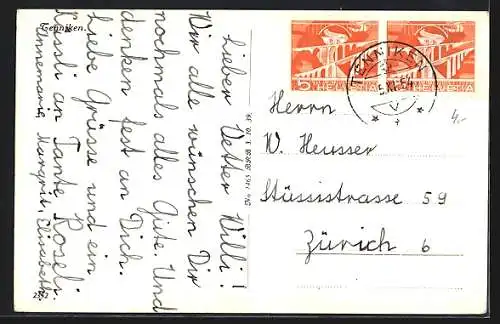 Tenniken.
Lieber Vetter Willi!
Wir alle wünschen Dir
nochmals alles Gute. Und
denken fest an Dich.
Liebe Grüsse und ein
Küssli an Tante Roseli.
Annemarie, Margrit, Elisabeth
TENNIKEN
5.XI.54
5 HELVETIA
HELVETIA
Herrn
W. Heusser
Stüssistrasse 59
Zürich 6
4.-